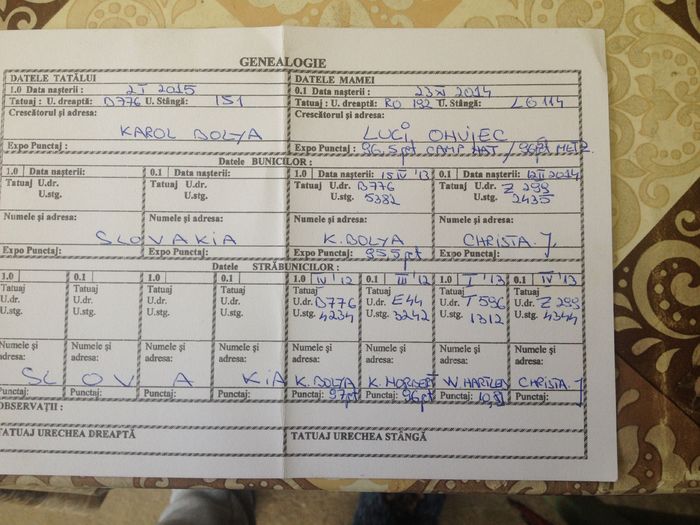 GENEALOGIE
DATELE TATĂLUI DATELE MAMEI
1.0 Data nașterii : 2 I 2015 0.1 Data nașterii : 23 XI 2014
Tatuaj : U. dreaptă: B776 U. Stângă: 151 Tatuaj : U. dreaptă: RO 192 U. Stângă: LG 114
Crescătorul și adresa: Crescătorul și adresa:
KAROL BOLYA LUCI
Expo Punctaj : Expo Punctaj : 96,5pt CAMP NAT / 96pt
Datele BUNICILOR :
1.0 Data nașterii: 0.1 Data nașterii: 1.0 Data nașterii: 15 IV '13 0.1 Data nașterii: 12 II 2014
Tatuaj U.dr. Tatuaj U.dr. Tatuaj U.dr. B776 Tatuaj U.dr. Z 299
U.stg. U.stg. U.stg. 5382 U.stg. 2435
Numele și adresa: Numele și adresa: Numele și adresa: Numele și adresa:
SLOVAKIA K. BOLYA CHRISTA. J.
Expo Punctaj: Expo Punctaj: Expo Punctaj: 95,5pt Expo Punctaj:
Datele STRĂBUNICILOR :
1.0 0.1 1.0 0.1 1.0 IV '12 0.1 III '12 1.0 I '13 0.1 IV '13
Tatuaj Tatuaj Tatuaj Tatuaj Tatuaj Tatuaj Tatuaj Tatuaj
U.dr. U.dr. U.dr. U.dr. U.dr. B776 U.dr. E44 U.dr. T596 U.dr. Z 299
U.stg. U.stg. U.stg. U.stg. U.stg. 4234 U.stg. 3242 U.stg. 1312 U.stg. 4344
Numele și Numele și Numele și Numele și Numele și Numele și Numele și Numele și
adresa: adresa: adresa: adresa: adresa: adresa: adresa: adresa:
SLOVAKIA K. BOLYA K. NORBERT W HARTLEB CHRISTA. J
Punctaj: Punctaj: Punctaj: Punctaj: Punctaj: 97pt Punctaj: 96pt Punctaj: Punctaj:
OBSERVAȚII :
TATUAJ URECHEA DREAPTĂ TATUAJ URECHEA STÂNGĂ